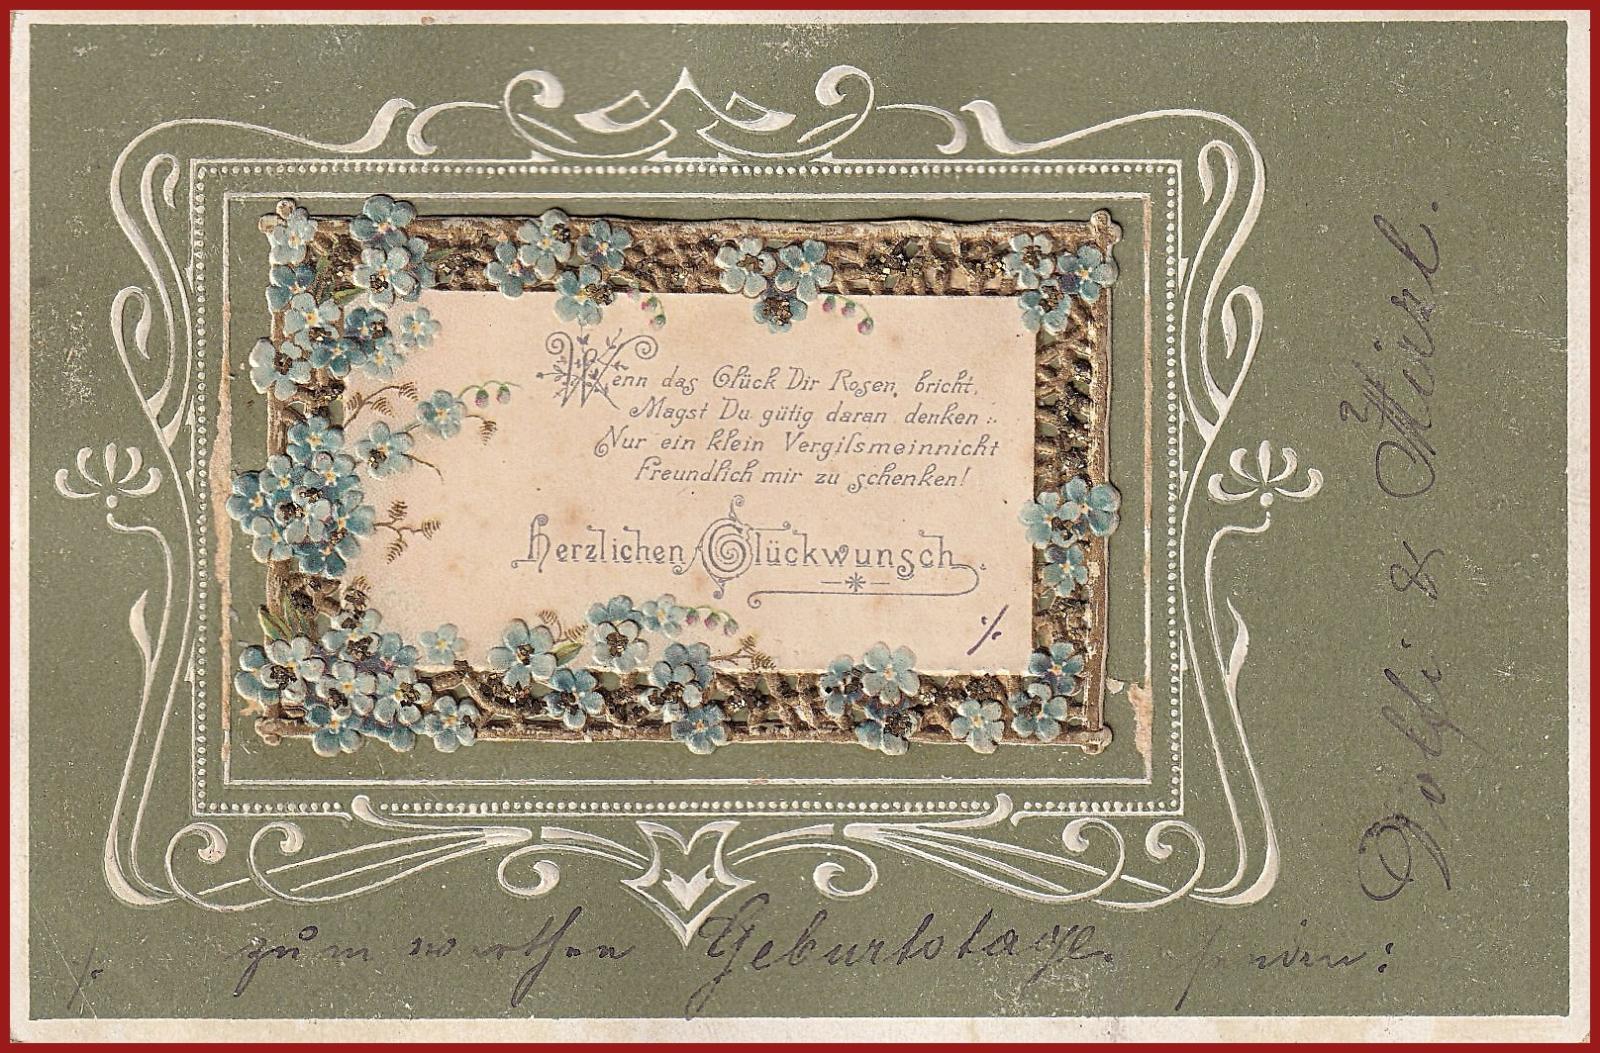 Wenn das Glück Dir Rosen bricht,
Magst Du gütig daran denken:
Nur ein klein Vergilsmeinnicht
Freundlich mir zu schenken!
Herzlichen Glückwunsch.
%
% zum werthen Geburtstage
Dolfi &